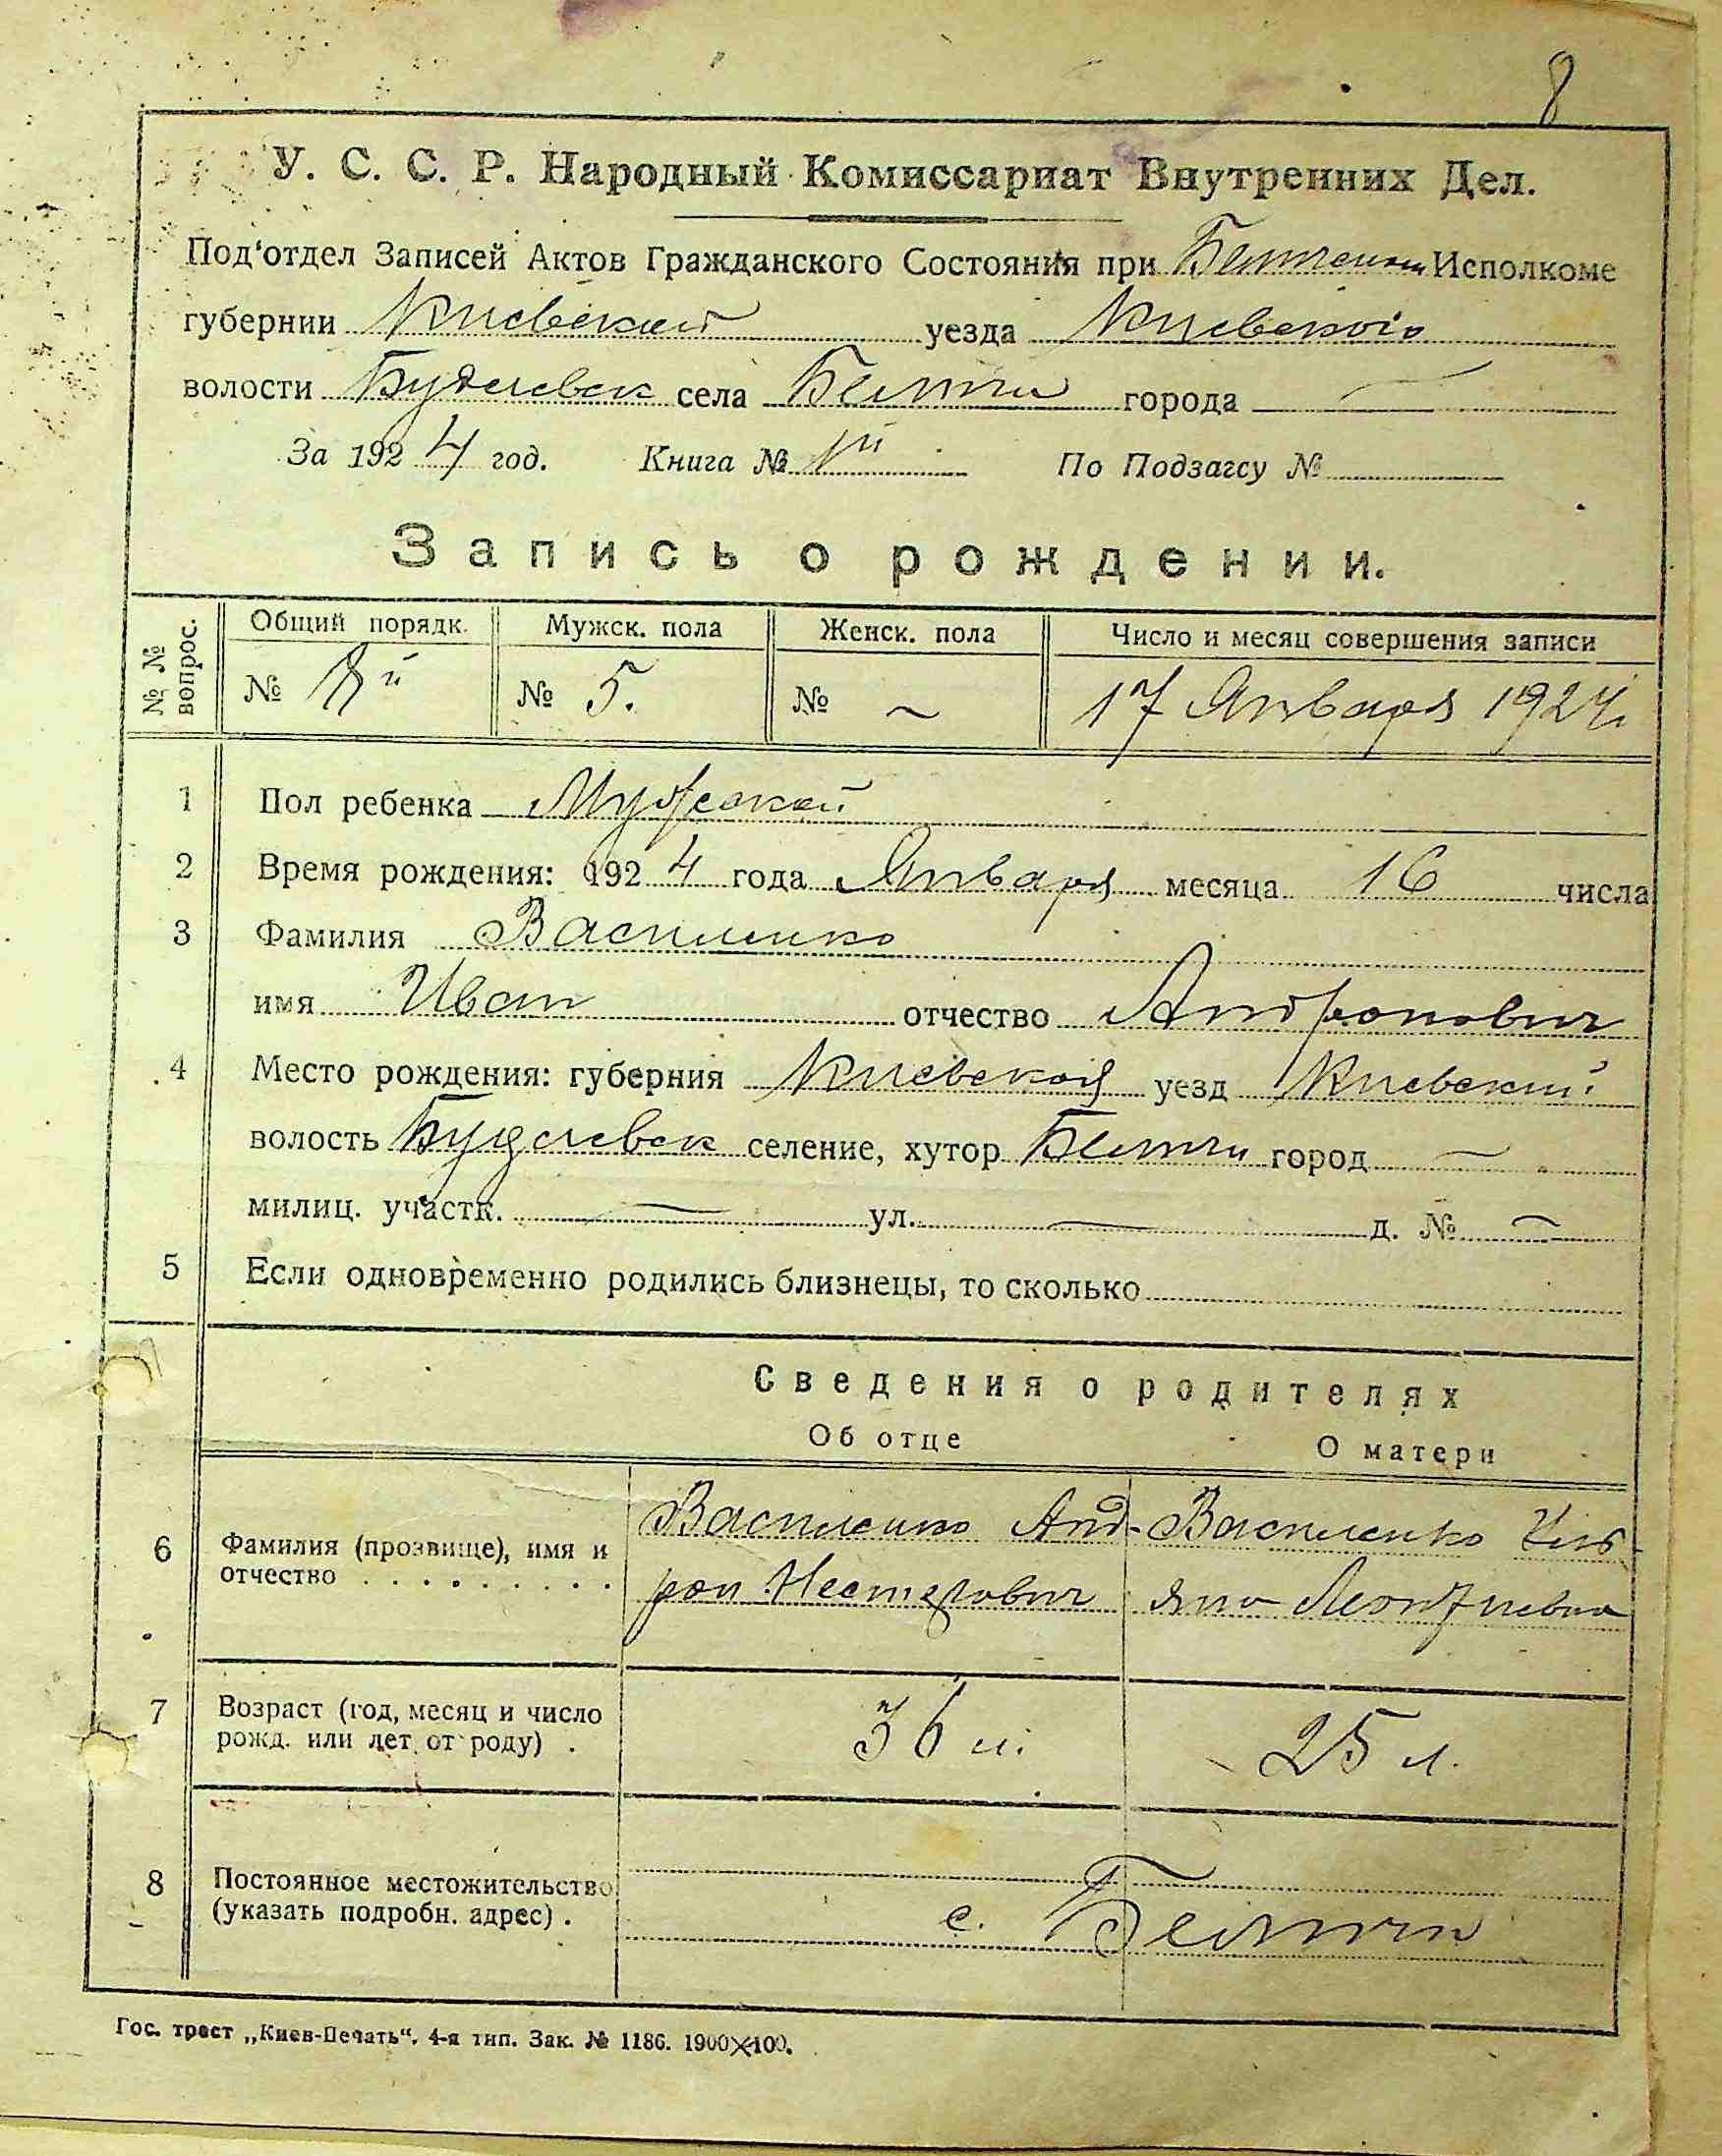 8
У. С. С. Р. Народный Комиссариат Внутренних Дел.
Под'отдел Записей Актов Гражданского Состояния при Исполкоме
губернии Киевской уезда Киевского
волости Будаевск села Белични города —
За 1924 год. Книга № По Подзагсу №
Запись о рождении.
№ № вопрос. Общий порядк. Мужск. пола Женск. пола Число и месяц совершения записи
№ 8й № 5. № ~ 17 Января 1924 г.
1 Пол ребенка Мужской
2 Время рождения: 1924 года Января месяца 16 числа
3 Фамилия Василенко
имя Иван отчество Андронович
4 Место рождения: губерния Киевская уезд Киевский
волость Будаевск селение, хутор город —
милиц. участк. — ул. — д. № —
5 Если одновременно родились близнецы, то сколько
Сведения о родителях
Об отце О матери
6 Фамилия (прозвище), имя и ВасиленкоАнд- Василенко Уль-
отчество . . . . . . . . . рон Нестерович яна Леонтиевна
7 Возраст (год, месяц и число 36 л. 25 л.
рожд. или лет от роду) .
8 Постоянное местожительство
(указать подробн. адрес) . с.
Гос. трест „Киев-Печать“. 4-я тип. Зак. № 1186. 1900×100.